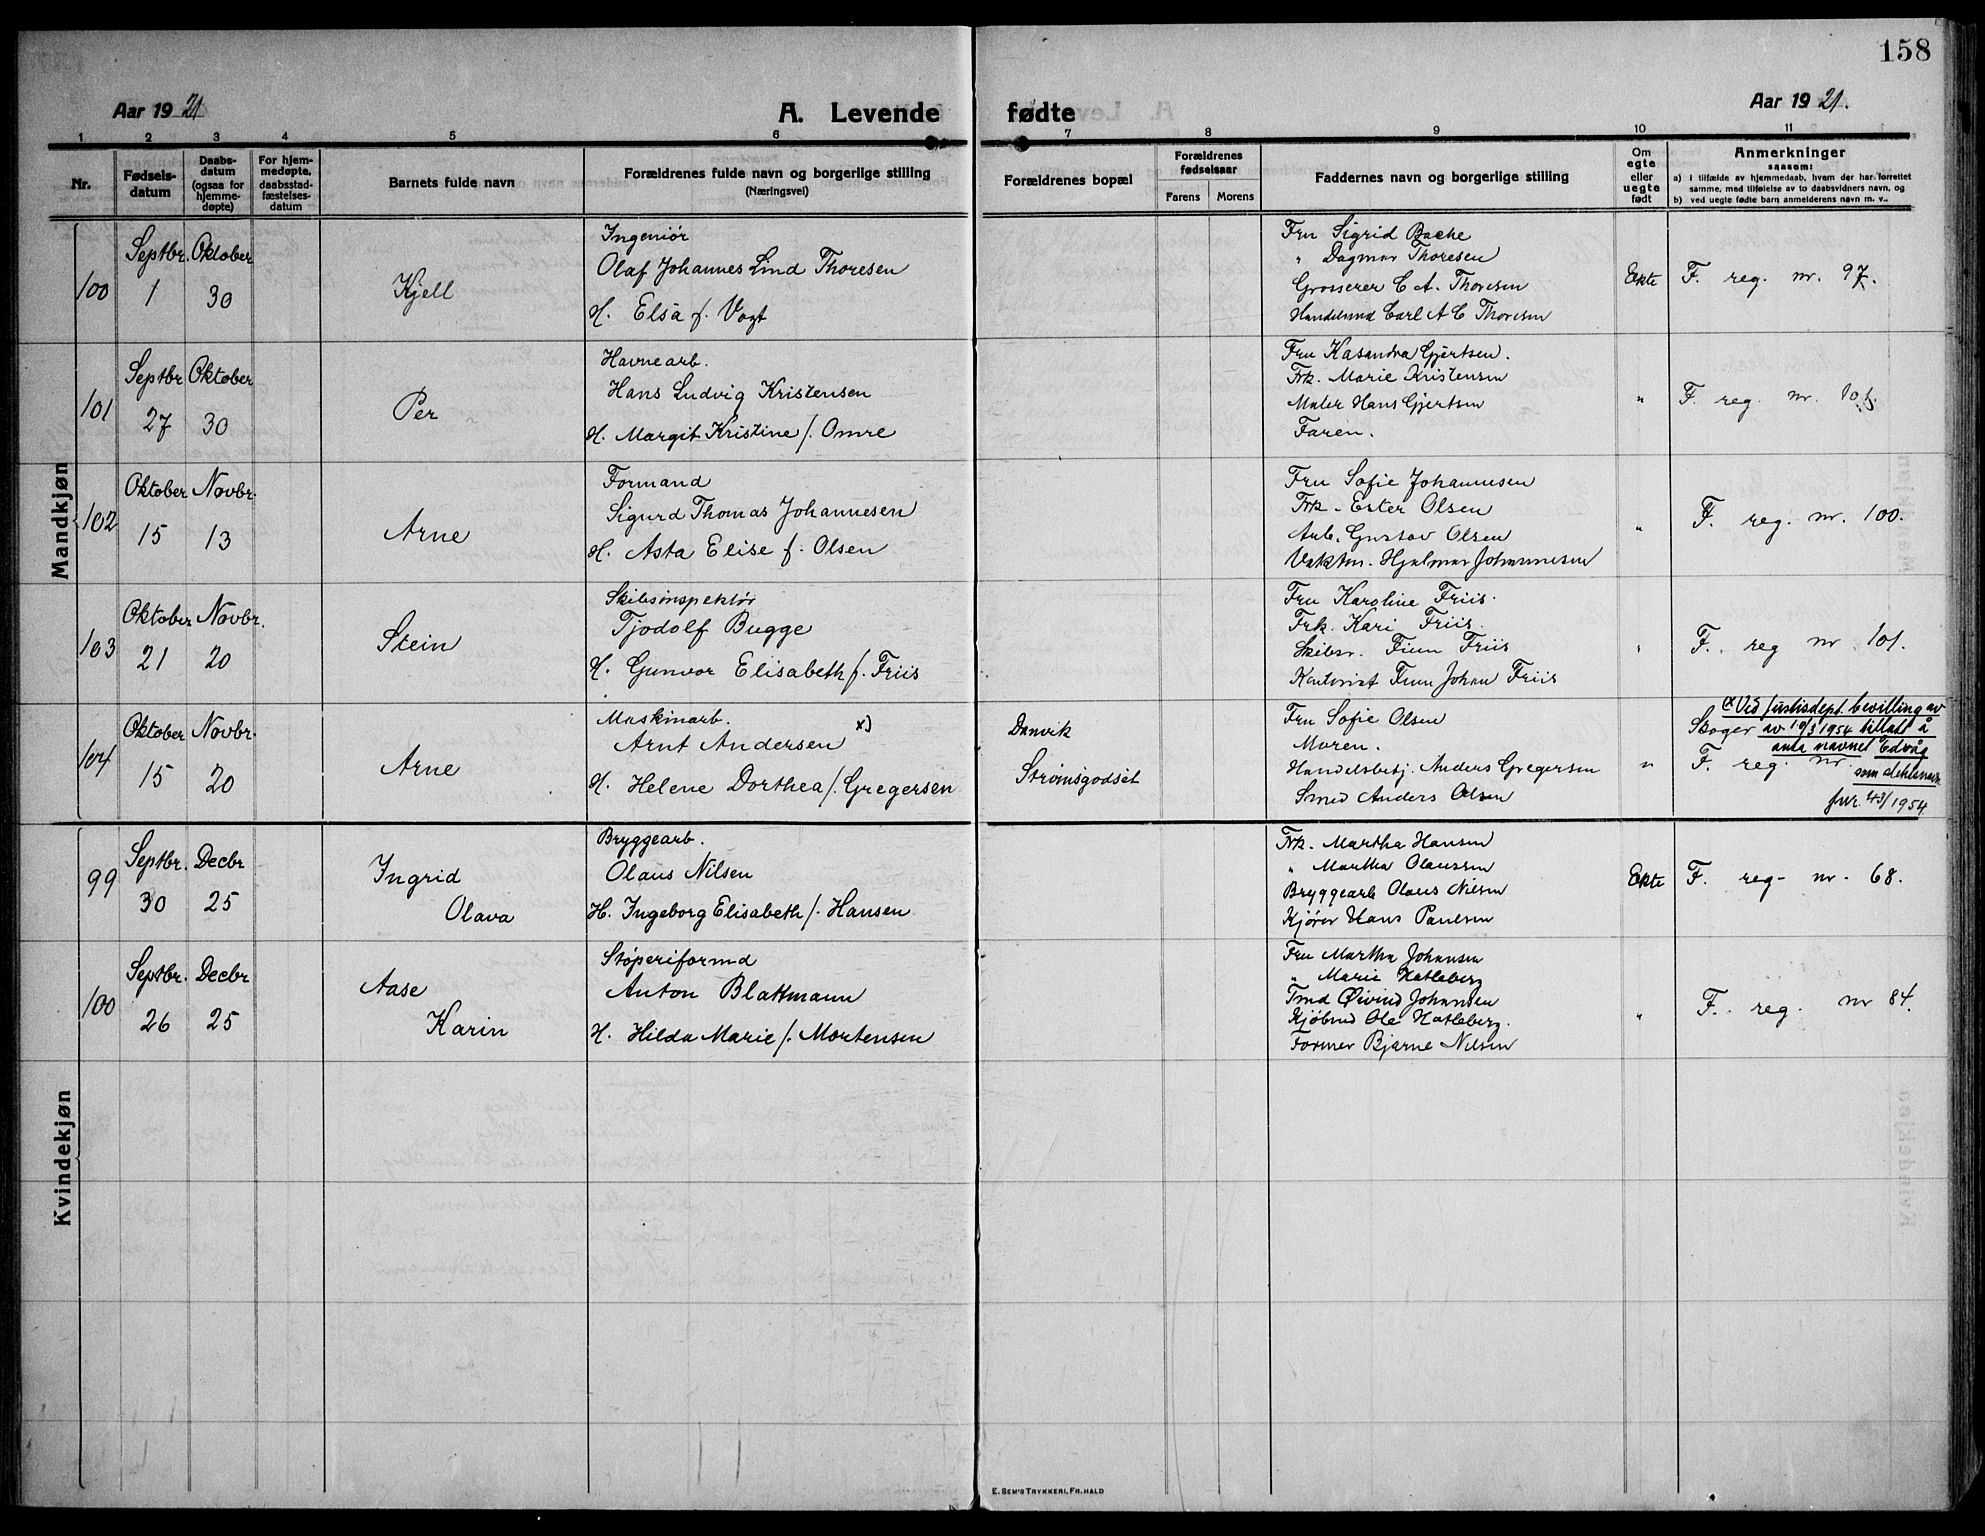 158
Aar 1921
A. Levende fødte
Aar 1921.
1 2 3 4 5 6 7 8 9 10 11
Nr.
Fødsels-
datum
Daabs-
datum
(ogsaa for
hjemme-
døpte)
For hjem-
medøpte,
daabsstad-
fæstelses-
datum
Barnets fulde navn
Forældrenes fulde navn og borgerlige stilling
(Næringsvei)
Forældrenes bopæl
Forældrenes
fødselsaar
Farens Morens
Faddernes navn og borgerlige stilling
Om
egte
eller
uegte
født
Anmerkninger
saasom:
a) i tilfælde av hjemmedaab, hvem der har forrettet
samme, med tilføielse av to daabsvidners navn, og
b) ved uegte fødte barn anmelderens navn m. v..
Mandkjøn
100
Septbr. Oktober
1 30
Kjell
Ingeniør
Olaf Johannes Lind Thoresen
H. Elsa f. Vogt
Fru Sigrid Bache
" Dagmar Thoresen
Grosserer C A. Thoresen
Handelsmd Carl A C Thoresen
Ekte
F. reg. nr. 97.
101
Septbr Oktober
27 30
Per
Havnearb.
Hans Ludvig Kristensen
H. Margit Kristine f. Omre
Fru Kasandra Gjertsen.
Frk. Marie Kristensen
Maler Hans Gjertsen
Faren.
"
F. reg. nr. 101.
102
Oktober Novbr.
15 13
Arne
Formand
Sigurd Thomas Johannesen
H. Asta Elise f. Olsen
Fru Sofie Johannesen
Frk. Ester Olsen
Arb. Gustav Olsen
Vaktm. Hjalmar Johannesen
"
F. reg. nr. 100.
103
Oktober Novbr.
21 20
Stein
Skibsinspektør
Tjodolf Bugge
H. Gunvor Elisabeth f. Friis
Fru Karoline Friis.
Frk. Kari Friis.
Skibsr. Finn Friis
Kontorist Finn Johan Friis
"
F. reg nr 101.
104
Oktober Novbr.
15 20
Arne
Maskinarb. x)
Arnt Andersen
H. Helene Dorthea f. Gregersen
Danvik
Strømsgodset
Fru Sofie Olsen
Moren.
Handelsbetj. Anders Gregersen
Smed Anders Olsen
"
x Ved justisdept. bevilling av
Skoger av 10/3 1954 tillatt å
anta navnet Edvåg
F. reg. nr.
som slektsnavn
jnr. 43/1954
Kvindekjøn
99
Septbr. Decbr
30 25
Ingrid
Olava
Bryggearb.
Olaus Nilsen
H. Ingeborg Elisabeth f. Hansen
Frk. Martha Hansen
" Martha Olaussen
Bryggearb Olaus Nilsen
Kjører Hans Paulsen
Ekte
F. reg- nr- 68.
100
Septbr. Decbr
26 25
Aase
Karin
Støperiformd
Anton Blattmann
H. Hilda Marie f. Mortensen
Fru Martha Johansen
" Marie Hatleberg
Tmd Øivind Johansen
Kjøbmd Ole Hatleberg.
Former Bjarne Nilsen
"
F. reg. nr 84.
E. SEM'S TRYKKERI, FR. HALD